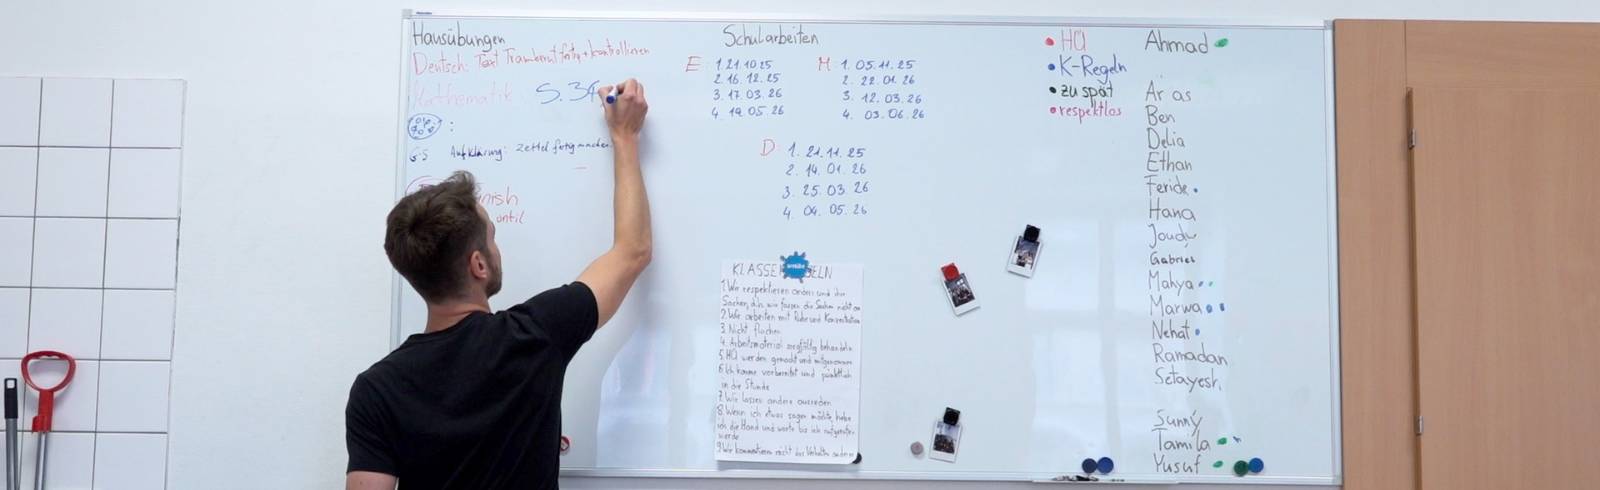 Hausübungen
Deutsch: Text fertig + kontrollieren
Mathematik S. 34
:
GS Aufklärung: Zettel fertig machen
until
Schularbeiten
E: 1. 21.10.25
2. 16.12.25
3. 17.03.26
4. 19.05.26
M: 1. 05.11.25
2. 22.01.26
3. 12.03.26
4. 03.06.26
D: 1. 21.11.25
2. 14.01.26
3. 25.03.26
4. 04.05.26
KLASSE ELN
1. Wir respektieren andere und ihre
Sachen, d.h. wir fassen die Sachen nicht an
2. Wir arbeiten mit Ruhe und Konzentration
3. Nicht fluchen
4. Arbeitsmaterial sorgfältig behandeln
5. HÜ werden gemacht und mitgenommen
6. Ich komme vorbereitet und pünktlich
in die Stunde
7. Wir lassen andere ausreden
8. Wenn ich etwas sagen möchte, hebe
ich die Hand und warte bis ich aufgerufen
werde
9. Wir kommentieren nicht das Verhalten anderer
• HÜ
• K-Regeln
• zu spät
• respektlos
Ahmad
Aras
Ben
Delia
Ethan
Feride
Hana
Joudy
Gabriel
Mahya
Marwa
Nehat
Ramadan
Setayesh
Sunny
Tamila
Yusuf